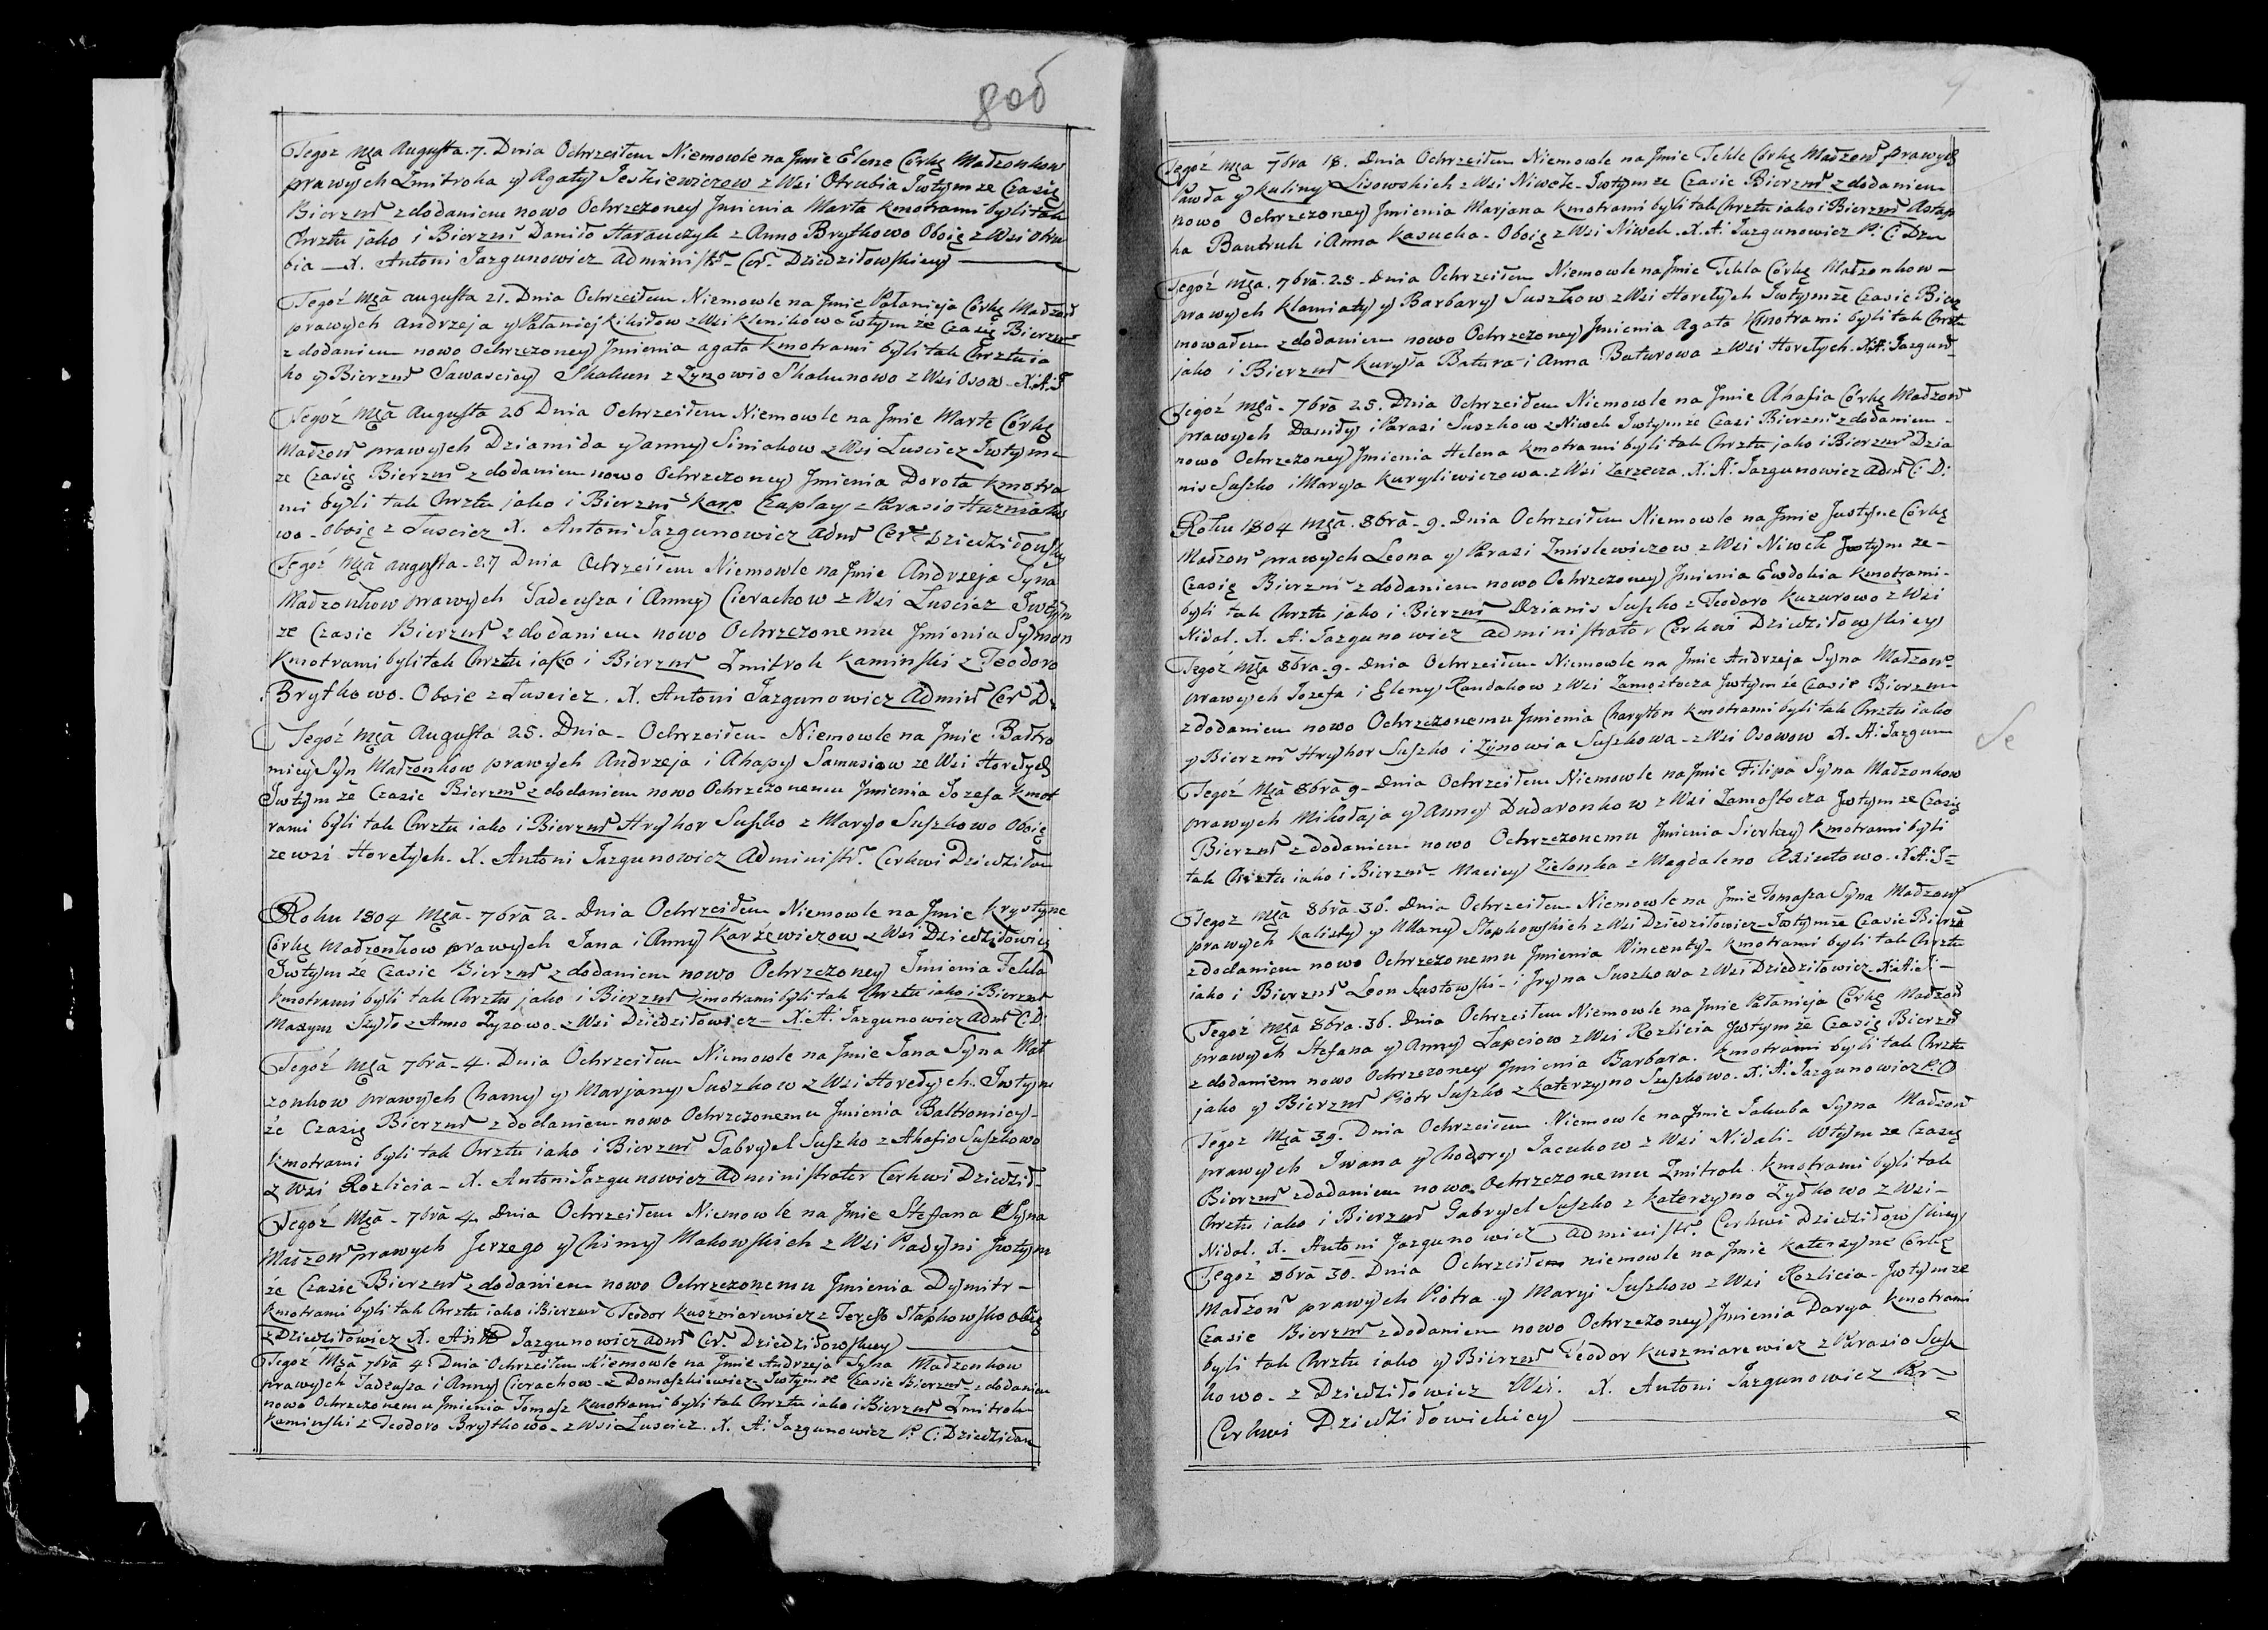 8 об
Tegoż Mca Augusta. 7. Dnia Ochrzciłem Niemowle na Jmie Elene Córkę Małżonkow
prawych Zmitroka y Agaty Jeskiewiczow z Wsi Otrubia Jwtymze Czasię
Bierzm z dodaniem nowo Ochrzczoney Jmienia Marta kmotrami byli tak
Chrztu jako i Bierzm Daniło Harauczyk z Anno Brytkowo Oboię z Wsi Otru
bia — X. Antoni Jazgunowicz administr. Cer. Dziedziłowskiey
Tegoż Mca augusta 21. Dnia Ochrzciłem Niemowle na Jmie Pałanieja Córkę Małżon
prawych Andrzeja y Pałaniej Kikiłow z Wsi Klenikowo wtym że Czasię Bierzm
z dodaniem nowo Ochrzczoney Jmienia agata kmotrami byli tak Chrztu ia
ko y Bierzm Sawasciey Skakun z Zynowio Skakunowo z Wsi Osow. X. A. J
Tegoż Mca Augusta 26 Dnia Ochrzciłem Niemowle na Jmie Marte Córkę
Małżon prawych Dziamida y anny Siniakow z Wsi Luscicz Jwtym
że Czasię Bierzm z dodaniem nowo Ochrzczoney Jmienia Dorota kmotra
mi byli tak Chrztu jako i Bierzm Karp Czaplay z Parasio Huzniako
wo. Oboię z Luscicz X. Antoni Jazgunowicz Adm Cer Dziedziłowskiey
Tegoż Mca augusta - 27 Dnia Ochrzciłem Niemowle na Jmie Andrzeja Syna
Małżonkow prawych Tadeusza i Anny Cierachow z Wsi Luscicz Jwtym
że Czasie Bierzm z dodaniem nowo Ochrzczonemu Jmienia Symon
Kmotrami byli tak Chrztu iako i Bierzm Zmitrok Kaminski z Teodoro
Brytkowo. Oboie z Luscicz. X. Antoni Jazgunowicz Admin Cer D.
Tegoż Mca Augusta 25. Dnia - Ochrzciłem Niemowle na Jmie Bałtro
miey Syn Małżonkow prawych Andrzeja i Ahapy Samusiow ze Wsi Horełych
Jwtym że Czasie Bierzm z dodaniem nowo Ochrzczonemu Jmienia Jozefa kmot
rami byli tak Chrztu iako i Bierzm Hryhor Suszko z Maryo Suszkowo Oboię
ze wsi Horełych. X. Antoni Jazgunowicz Administr. Cerkwi Dziedziłow
Roku 1804 Mca. 7bra 2. Dnia Ochrzciłem Niemowle na Jmie Krystyne
Córkę Małżonkow prawych Jana i Anny Karżewiczow z Wsi Dziedziłowicz
Jwtym że Czasie Bierzm z dodaniem nowo Ochrzczoney Jmienia Tekla
kmotrami byli tak Chrztu jako i Bierzm kmotrami byli tak Chrztu iako i Bierzm
Maxym Szyło z Anno Zyzowo. z Wsi Dziedziłowicz - X. A. Jazgunowicz Adm C. D.
Tegoż Mca 7bra - 4. Dnia Ochrzciłem Niemowle na Jmie Jana Syna Mał
żonkow prawych Chamy y Marjany Suszkow z Wsi Horełych. Jwtym
że Czasię Bierzm z dodaniem nowo Ochrzczonemu Jmienia Baltromiey
kmotrami byli tak Chrztu iako i Bierzm Gabryel Suszko z Ahafio Suszkowo
z Wsi Rozlicia - X. Antoni Jazgunowicz administrator Cerkwi Dziedził
Tegoż Mca - 7bra 4. Dnia Ochrzciłem Niemowle na Jmie Stefana Syna
Małżon prawych Jerzego y Chimy Makowskich z Wsi Piadyni Jwtym
że Czasie Bierzm z dodaniem nowo Ochrzczonemu Jmienia Dymitr -
kmotrami byli tak Chrztu iako i Bierzm Teodor Kuszniarewicz z Teresso Stapkowsko oboię
z Dziedziłowicz X. Ant Jazgunowicz adm Cer. Dziedziłowskiey
Tegoż Mca 7bra 4 Dnia Ochrzciłem Niemowle na Jmie Andrzeja Syna Małżonkow
prawych Tadeusza i Anny Cierachow z Domaszkiewicz Jwtym że Czasie Bierzm z dodaniem
nowo Ochrzczonemu Jmienia Tomasz kmotrami byli tak Chrztu iako i Bierzm Zmitrok
Kaminski z Teodoro Brytkowo. z Wsi Luscicz. X. A. Jazgunowicz P. C. Dziedziłow
9
Tegoż Mca 7bra 18. Dnia Ochrzciłem Niemowle na Jmie Tekle Córkę Małżon Prawych
Pawła y Kuliny Lisowskich z Wsi Niwek - Jwtymże Czasie Bierzm z dodaniem
nowo Ochrzczoney Jmienia Marjana kmotrami byli tak Chrztu iako i Bierzm Astap
ka Bautruk i Anna Kasucka. Oboię z Wsi Niwek. X. A. Jazgunowicz P. C. Dzie
Tegoż Mca. 7bra. 25. Dnia Ochrzciłem Niemowle na Jmie Tekla Córkę Małżonkow -
prawych Klamiaty y Barbary Suszkow z Wsi Horełych Jwtymże Czasie Bierz
mowałem z dodaniem nowo Ochrzczoney Jmienia Agata Kmotrami byli tak Chrztu
jako i Bierzm Kuryła Batura i Anna Baturowa z Wsi Horełych. X. A. Jazgun
Tegoż Mca - 7bra 25. Dnia Ochrzciłem Niemowle na Jmie Ahafia Córkę Małżon
prawych Daniły i Parasi Suszkow z Niwek Jwtym że Czasi Bierzm z dodaniem -
nowo Ochrzczoney Jmienia Helena kmotrami byli tak Chrztu jako i Bierzm Dzia
nis Suszko i Marya Kuryliwiczowa z Wsi Zarzecza. X. A. Jazgunowicz Adm C. D.
Roku 1804 Mca. 8bra - 9. Dnia Ochrzciłem Niemowle na Jmie Justyne Córkę
Małżon prawych Leona y Parasi Zmislewiczow z Wsi Niwek Jwtym że -
Czasię Bierzm z dodaniem nowo Ochrzczoney Jmienia Ewdokia kmotrami -
byli tak Chrztu jako i Bierzm Dzianis Suszko z Teodoro Kazurowo z Wsi
Nidal. X. A. Jazgunowicz administrator Cerkwi Dziedziłowskiey
Tegoż Mca 8bra - 9. Dnia Ochrzciłem Niemowle na Jmie Andrzeja Syna Małżon
prawych Jozefa i Eleny Randakow z Wsi Zamoztocza Jwtym że Czasie Bierzm
z dodaniem nowo Ochrzczonemu Jmienia Charyton kmotrami byli tak Chrztu iako
y Bierzm Hryhor Suszko i Zynowia Suszkowa - z Wsi Osowow X. A. Jazgun
Tegoż Mca 8bra 9 - Dnia Ochrzciłem Niemowle na Jmie Filipa Syna Małżonkow
prawych Mikołaja y Anny Dudaronkow z Wsi Zamostocza Jwtym że Czasię
Bierzm z dodaniem nowo Ochrzczonemu Jmienia Sierhey kmotrami byli
tak Chrztu iako i Bierzm - Maciey Zielonka z Magdaleno Axiutowo. X. A. J
Tegoż Mca 8bra 36. Dnia Ochrzciłem Niemowle na Jmie Tomasza Syna Małżon
prawych Kalisty y Ullany Stapkowskich z Wsi Dziedziłowicz Jwtymże Czasie Bierzm
z dodaniem nowo Ochrzczonemu Jmienia Wincenty - kmotrami byli tak Chrztu
iako i Bierzm Leon Szustowski - i Jryna Suszkowa z Wsi Dziedziłowicz. X. A. J -
Tegoż Mca 8bra. 36. Dnia Ochrzciłem Niemowle na Jmie Pałanieja Córkę Małżon
prawych Stefana y Anny Łapciow z Wsi Rozlicia Jwtym że Czasię Bierzm
z dodaniem nowo Ochrzczoney Jmienia Barbara. kmotrami byli tak Chrztu
jako y Bierzm Piotr Suszko z Katerzyno Suszkowo. X. A. Jazgunowicz P. C. D
Tegoż Mca 39. Dnia Ochrzciłem Niemowle na Jmie Jakuba Syna Małżon
prawych Jwana y Chodory Jacukow z Wsi Nidali - Wtym że Czasię
Bierzm z dodaniem nowo Ochrzczonemu Zmitrok. kmotrami byli tak
Chrztu iako i Bierzm Gabryel Suszko z Katerzyno Zydkowo z Wsi -
Nidal. X. Antoni Jazgunowicz administr. Cerkwi Dziedziłowskiey
Tegoż 8bra 30. Dnia Ochrzciłem niemowle na Jmie Katerzyne Córkę
Małżon prawych Piotra y Maryi Suszkow z Wsi Rozlicia - Jwtymże
Czasie Bierzm z dodaniem nowo Ochrzczoney Jmienia Darya kmotrami
byli tak Chrztu iako y Bierzm Teodor Kuszniarewicz z Parasio Susz
kowo - z Dziedziłowicz Wsi. X. Antoni Jazgunowicz Pr -
Cerkwi Dziedziłówickiey